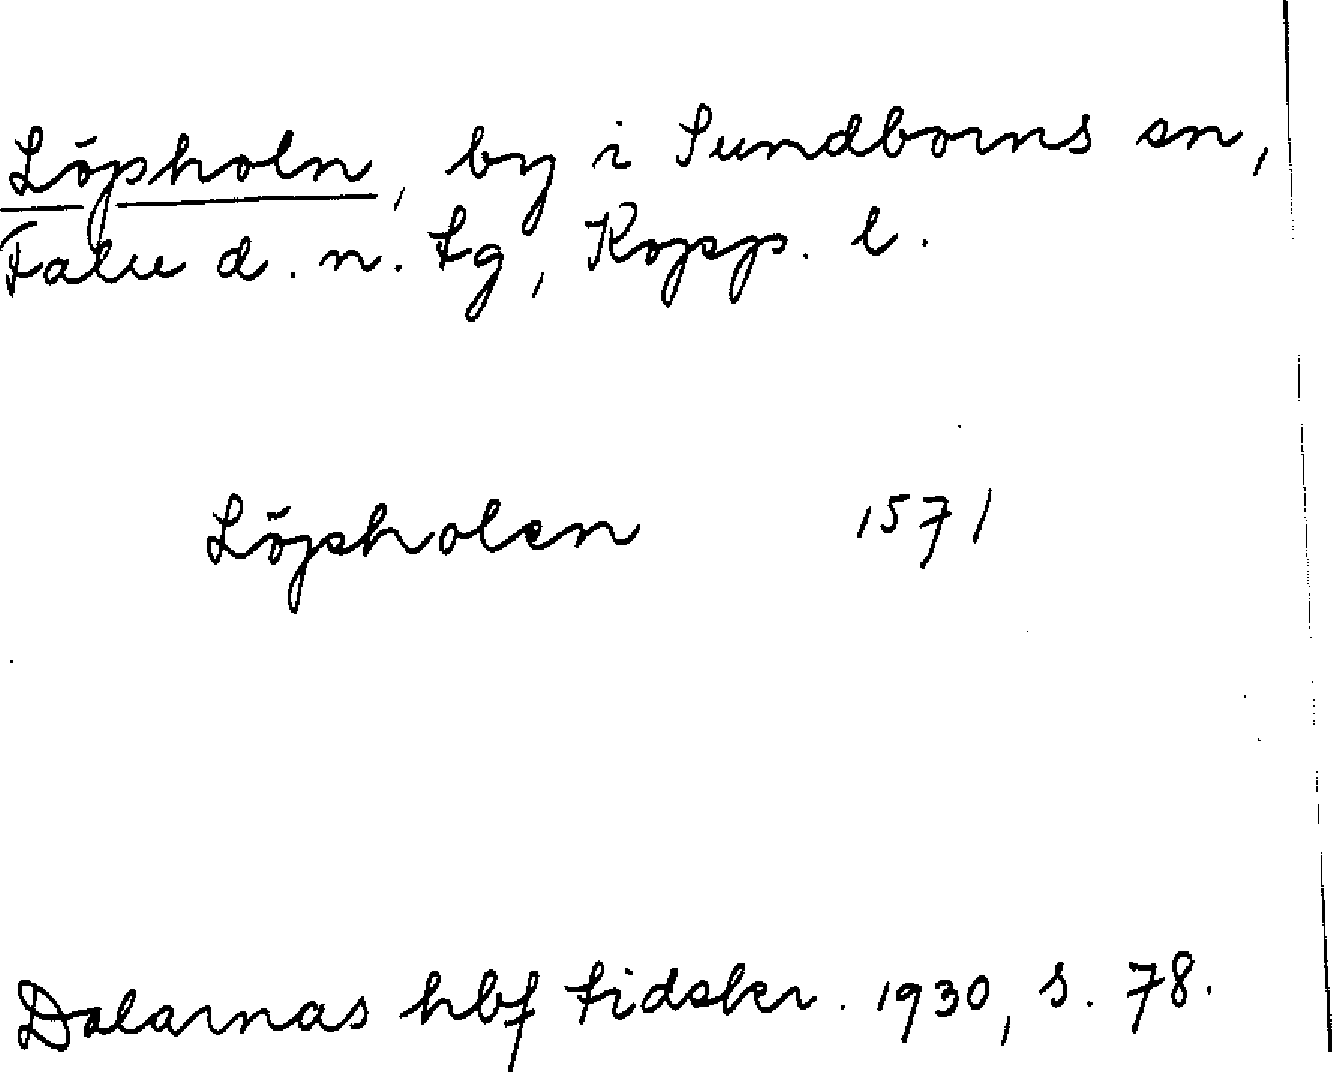 Löpholn, by i Sundborns sn,
Falu d. n. tg, Kopp. l.
Löpsholen 1571
Dalarnas hbf tidskr. 1930, s. 78.